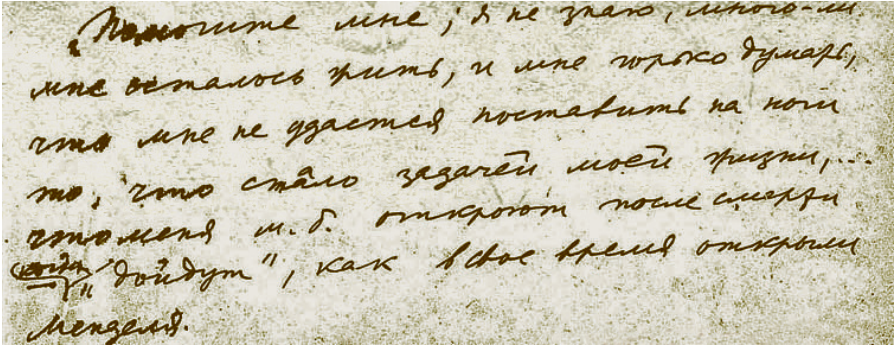 Помогите мне; я не знаю, много-ли
мне осталось жить, и мне горько думать,
что мне не удастся поставить на ноги
то, что стало задачей моей жизни,...
что меня м. б. откроют после смерти
когда "дойдут", как в свое время открыли
Менделя.